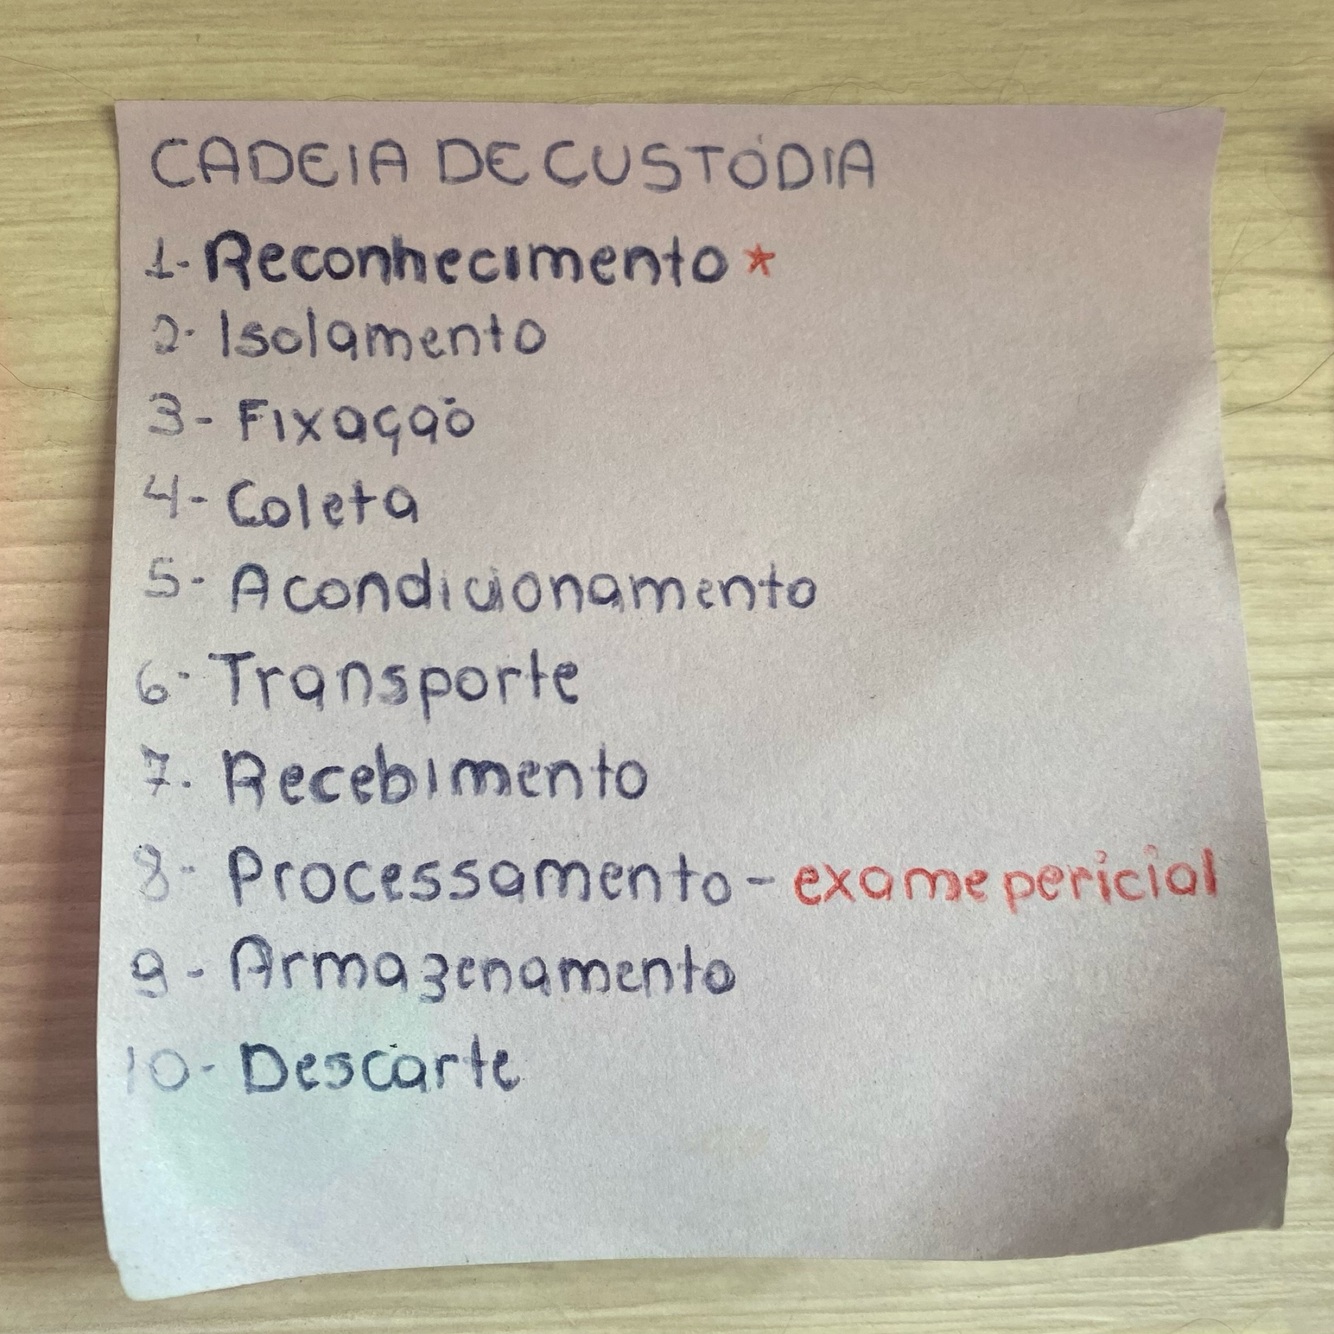 CADEIA DE CUSTÓDIA
1- Reconhecimento *
2- Isolamento
3- Fixação
4- Coleta
5- Acondicionamento
6- Transporte
7. Recebimento
8- Processamento - exame pericial
9- Armazenamento
10- Descarte